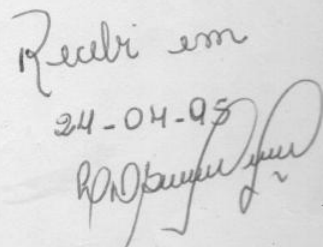 Recebi em
24-04-95